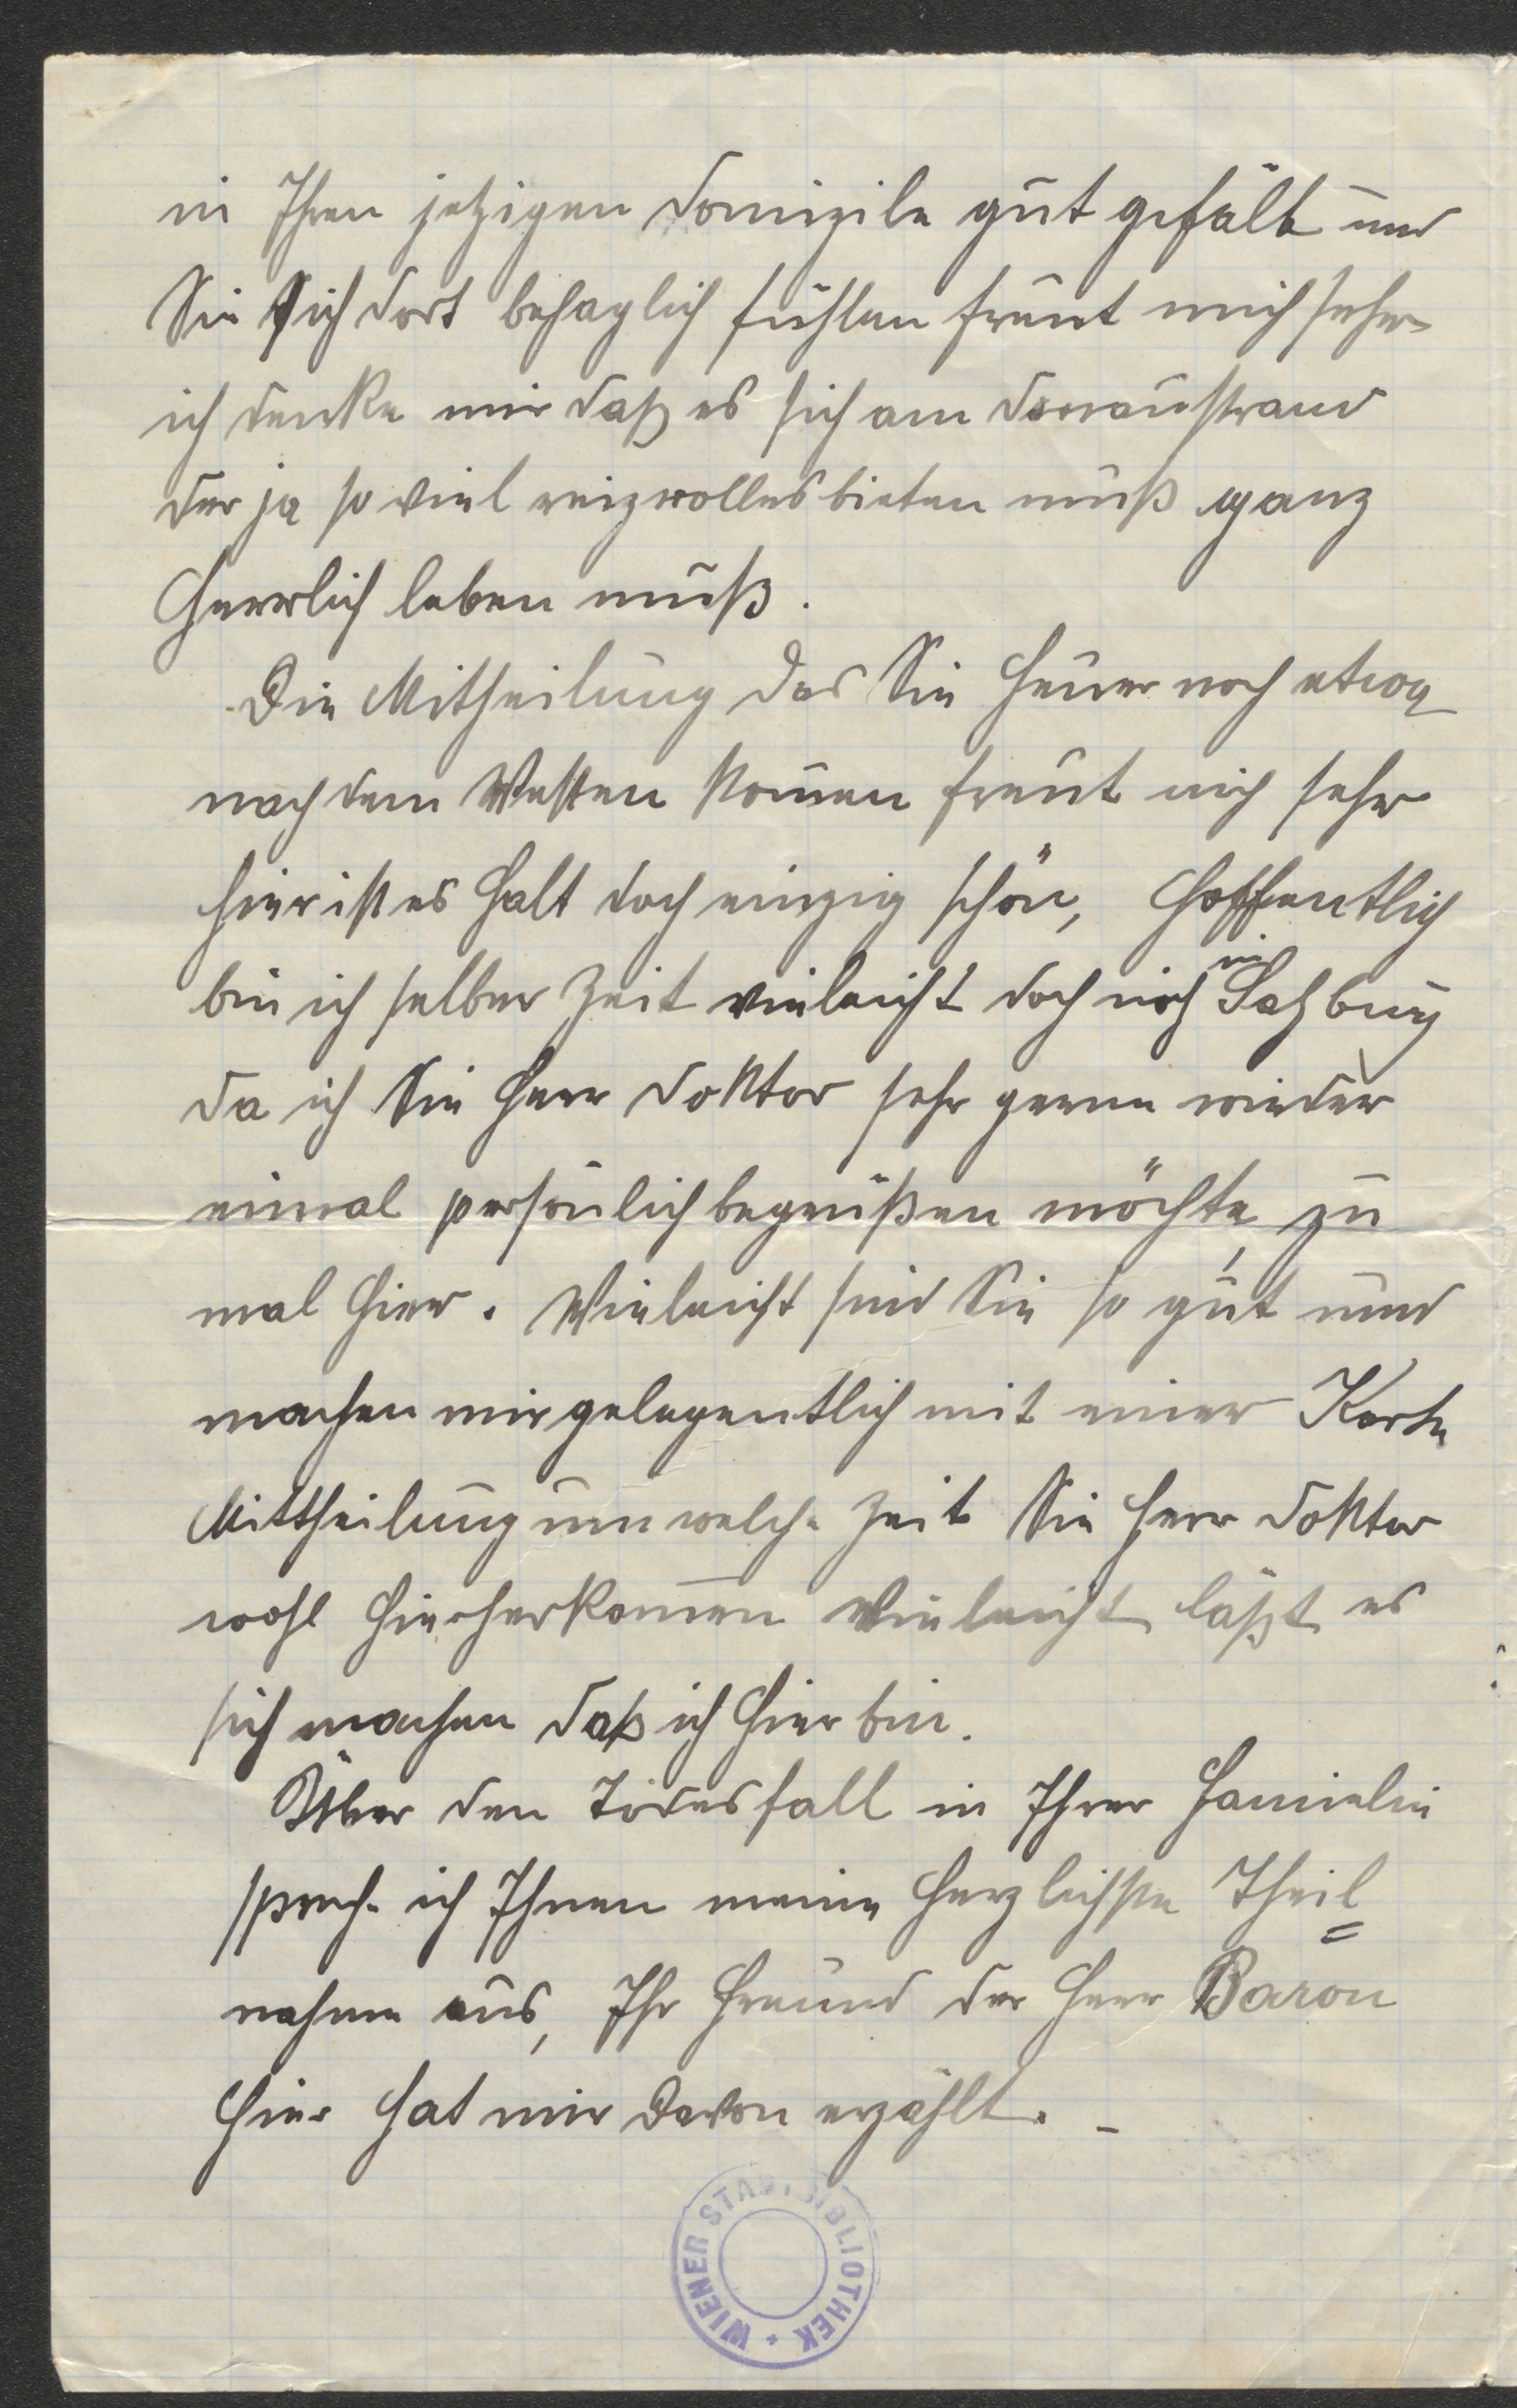 in Ihren jetzigen Domizile gut gefält und
Sie sich dort behaglich fühlen freut mich sehr
ich denke mir daß es sich am Donaustrand
der ja so viel reizvolles bieten muß ganz
Herrlich leben muß.
Die Mitheilung das Sie Heuer noch etwa
nach dem Westen komen freut mich sehr
hier ist es Halt doch einzig schön, Hoffentlich
bin ich selber Zeit vieleicht doch noch in Salzburg
da ich Sie Herr Doktor sehr gerne wieder
einmal persönlich begrüßen möchte, zu
mal Hier. Vieleicht sind Sie so gut und
machen mir gelegentlich mit einer Karte
Mittheilung um welche Zeit Sie Herr Doktor
wohl Hierherkomen Vieleicht läßt es
sich machen daß ich Hier bin.
Über den Todesfall in Ihrer Famielie
spreche ich Ihnen meine Herzlichste Theil
nahme aus, Ihr Freund der Herr Baron
Hier Hat mir Davon erzählt. –
WIENER STADTBIBLIOTHEK